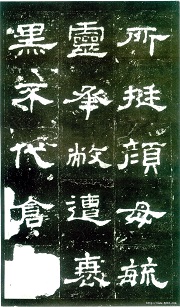 所挺顏母毓
靈承敝遭衰
黑不代倉